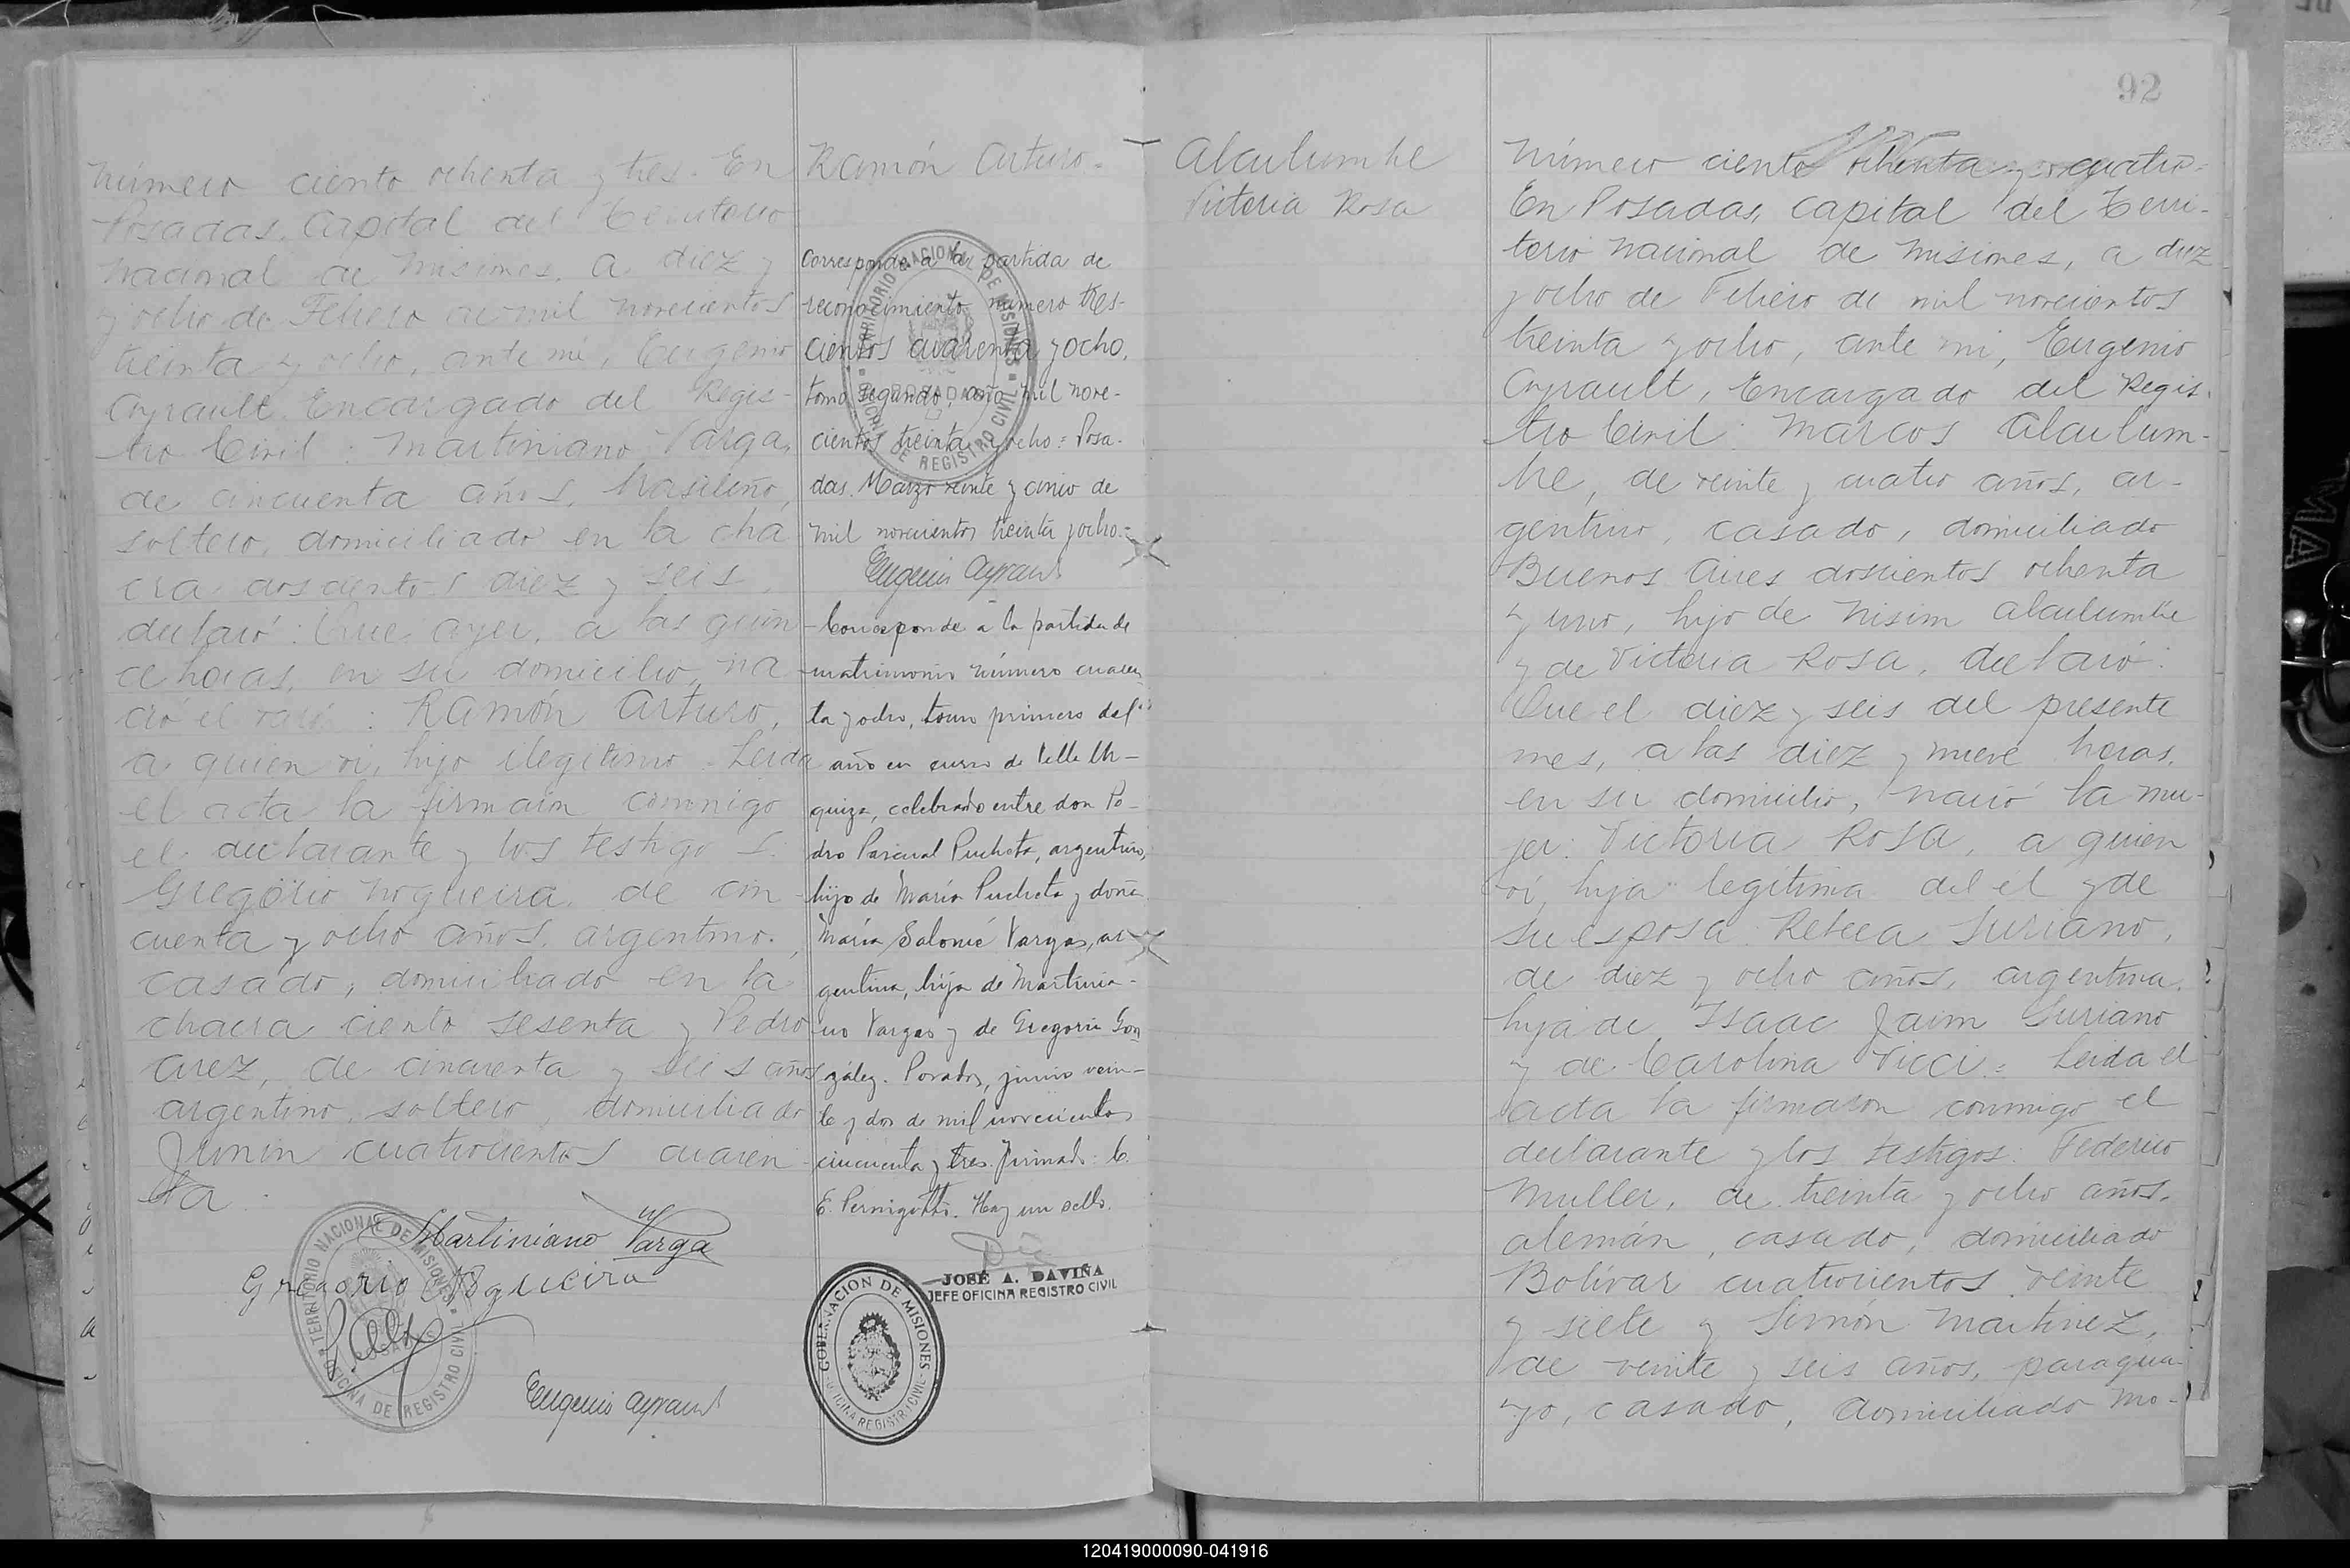 Número ciento ochenta y tres. En
Posadas, Capital del Territorio
Nacional de Misiones, a diez y
y ocho de Febrero de mil novecientos
treinta y ocho, ante mí, Eugenio
Ayrault, Encargado del Regis-
tro Civil: Martiniano Varga,
de cincuenta años, brasileño,
soltero, domiciliado en la cha
cra doscientos diez y seis,
declaró: Que ayer, a las quin
ce horas, en su domicilio, na
ció el varón: Ramón Arturo,
a quien ví, hijo ilegítimo. Leída
el acta la firmaron conmigo
el declarante y los testigos:
Gregorio Nogueira, de cin
cuenta y ocho años, argentino,
casado, domiciliado en la
chacra ciento sesenta y Pedro
Arez, de cincuenta y seis años
argentino, soltero, domiciliado
Junín cuatrocientos cuaren
ta.
Martiniano Varga
Gregorio Nogueira
Eugenio Ayrault
TERRITORIO NACIONAL DE MISIONES
OFICINA DE REGISTRO CIVIL
Ramón Arturo.
Corresponde a la partida de
reconocimiento número tres-
cientos cuarenta y ocho,
tomo segundo, año mil nove-
cientos treinta y ocho = Posa-
das. Marzo veinte y cinco de
mil novecientos treinta y ocho.=
Eugenio Ayrault
TERRITORIO NACIONAL DE MISIONES
POSADAS
OFICINA DE REGISTRO CIVIL
Corresponde a la partida de
matrimonio número cuaren
ta y ocho, tomo primero del
año en curso de Villa Ur-
quiza, celebrado entre don Pe-
dro Pascual Pucheta, argentino,
hijo de María Pucheta y doña
María Salomé Vargas, ar-
gentina, hija de Martinia-
no Vargas y de Gregoria Gon
zález. Posadas, junio vein-
te y dos de mil novecientos
cincuenta y tres. Firmado: C.
E. Pernigotti. Hay un sello.
JOSÉ A. DAVIÑA
JEFE OFICINA REGISTRO CIVIL
GOBERNACION DE MISIONES
OFICINA REGISTRO CIVIL
92
Alculumbre
Victoria Rosa
Número ciento ochenta y cuatro-
En Posadas, Capital del Terri-
torio Nacional de Misiones, a diez
y ocho de Febrero de mil novecientos
treinta y ocho, ante mí, Eugenio
Ayrault, Encargado del Regis-
tro Civil: Marcos Alculum-
bre, de veinte y cuatro años, ar-
gentino, casado, domiciliado
Buenos Aires doscientos ochenta
y uno, hijo de Nisim Alculumbre
y de Victoria Rosa, declaró:
Que el diez y seis del presente
mes, a las diez y nueve horas,
en su domicilio, nació la mu-
jer: Victoria Rosa, a quien
ví, hija legítima del él y de
su esposa Rebeca Suriano,
de diez y ocho años, argentina,
hija de Isaac Jaim Suriano
y de Carolina Vicci = Leída el
acta la firmaron conmigo el
declarante y los testigos: Federico
Muller, de treinta y ocho años,
alemán, casado, domiciliado
Bolívar cuatrocientos veinte
y siete y Simón Martinez,
de veinte y seis años, paragua-
yo, casado, domiciliado Mo-
120419000090-041916